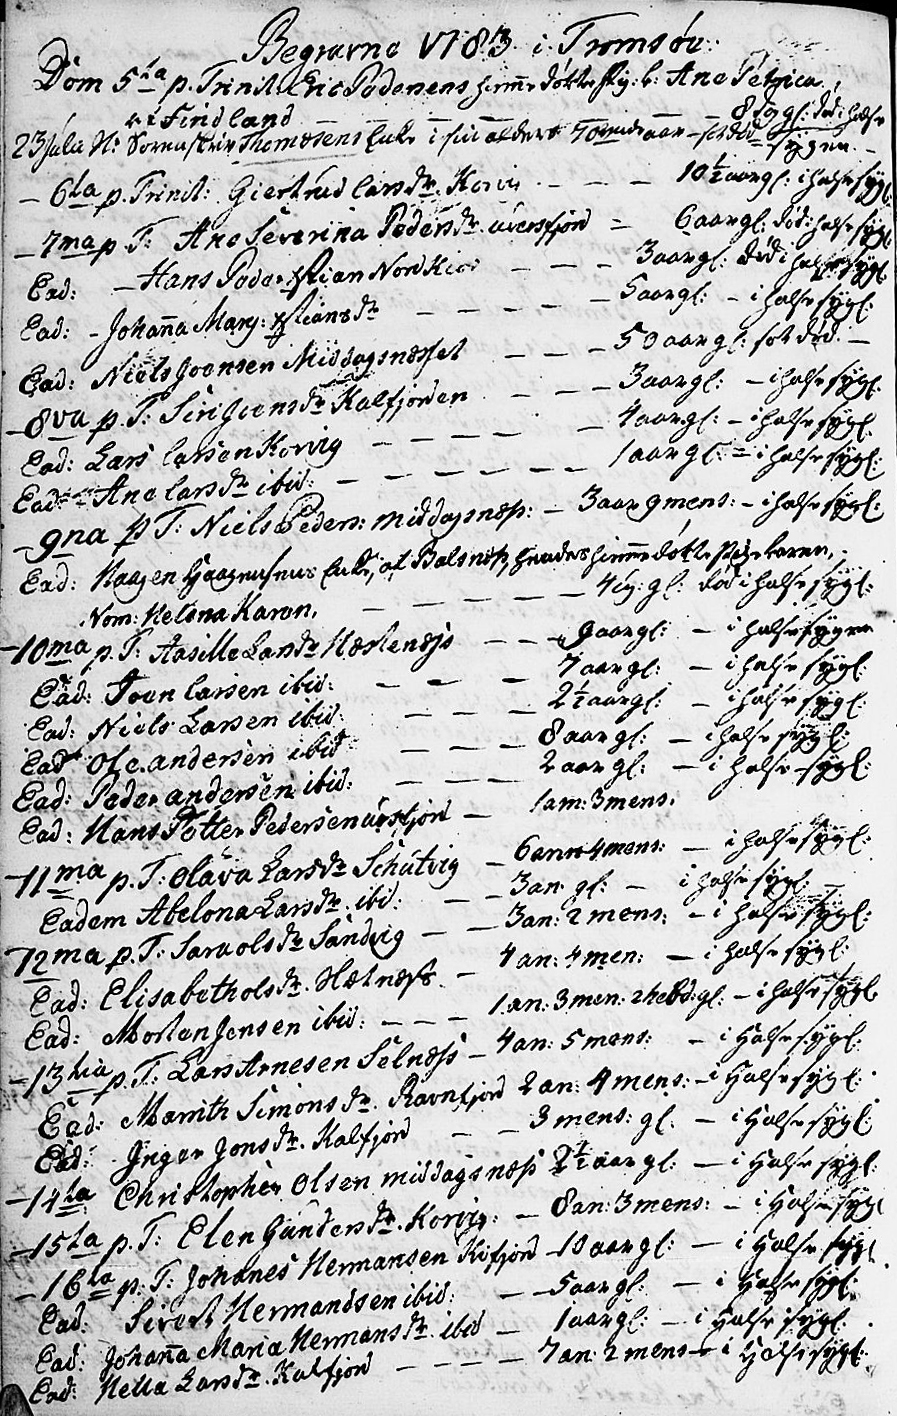 Begravne 1783 i Tromsöe:
Dom 5ta p. Trinit. Eric Pedersens hiemedöbte Pige b. Ane Petrica
Findland — — — — 8 d: gl: död i halse
23 Julii N: Sören Thomæsens Enke i sin alders 70 aar — sot död sygen. —
— 6ta p. Trinit: Giertrud Larsdr. Korvig — — — 10½ aar gl: i halse sygl:
— 7ma p T: Ane Severina Pedersdr. Uversfjord — 6 aar gl: död i halse sygl
Ead: — Hans Peder Xstian Nordkiod — — — 3 aar gl: död i halse sygl:
Ead: — Johanna Marg: Xstiansdr — — — — — 5 aar gl: — i halse sygl:
Ead: Niels Joensen Middagsnæsset — — — 50 aar gl: sot död. —
— 8va p. T: Siri Jensdr. Kalfjorden — — — 3 aar gl: — i halse sygl:
Ead: Lars Larsen Korvig — — — — — 4 aar gl: — i halse sygl:
Ead: Ane Larsdr. ibid: — — — — — — 1 aar gl: — i halse sygl:
— 9na p T: Niels Peders: middagsnæs: — 3 aar 9 mens: — i halse sygl:
Ead: Haagen Haagensens Enke, af Balsnæs, hendes hiemedöbte Pige baren,
Nom: Helena Karen, — — — — — 4 ug: gl: död i halse sygl:
— 10ma p. T: Aasille Larsdr. Hæstenæss — — 9 aar gl: — i halse sygen
Ead: Joen Larsen ibid: — — — 7 aar gl: — i halse sygl:
Ead: Niels Larsen ibid: — — — 2½ aar gl: — i halse sygl:
Ead Ole andersen ibid: — — — — 8 aar gl: — i halse sygl:
Ead: Peder andersen ibid: — — — — 2 aar gl: — i halse sygl:
Ead: Hans Petter Pedersen uversfjord — 1 an: 3 mens.
— 11ma p. T: Olava Larsdr. Schutvig — 6 ann 4 mens: — i halse sygl:
Eadem Abelona Larsdr. ibd: — — 3 an: gl: — i halse sygl: —
12ma p. T: Sara Olsdr. Sandvig — — 3 an: 2 mens: — i halse sygl:
Ead: Elisabeth Olsdr. Hælnæss. — 4 an: 4 men: — i halse sygl:
Ead: Morten Jensen ibid: — — — 1 an: 3 men: 2 hebd: gl: — i halse sygl:
— 13tia p. T: Lars Arnesen Selnæss — 4 an: 5 mens: — i Halse sygl:
Ead: Marrith Simonsdr. Ravnfjord 2 an: 4 mens: — i Halse sygl:
Ead: Inger Jonsdr. Kalfjord — — 3 mens: gl: — i Halse sygl:
— 14ta Christopher Olsen middagsnæss 2½ aar gl: — i Halse sygl:
— 15ta p. T: Elen Gundersdr. Korvig: — 8 an: 3 mens: — i Halse syg
— 16ta p. T: Johanes Hermansen Kifjord — 10 aar gl: — i Halse syg
Ead: Sivert Hermandsen ibid: — — 5 aar gl: — i Halse sygl:
Ead: Johanna Maria Hermansdr. ibid — 1 aar gl: — i Halse sygl: .
Ead: Hella Larsdr. Kalfjord — — — — 7 an: 2 mens — i Halse sygl: